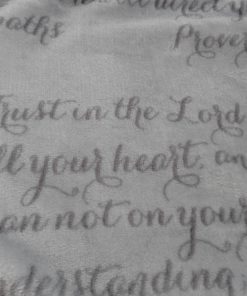 paths
Prover
Trust in the Lord
ll your heart, an
an not on your
nderstanding